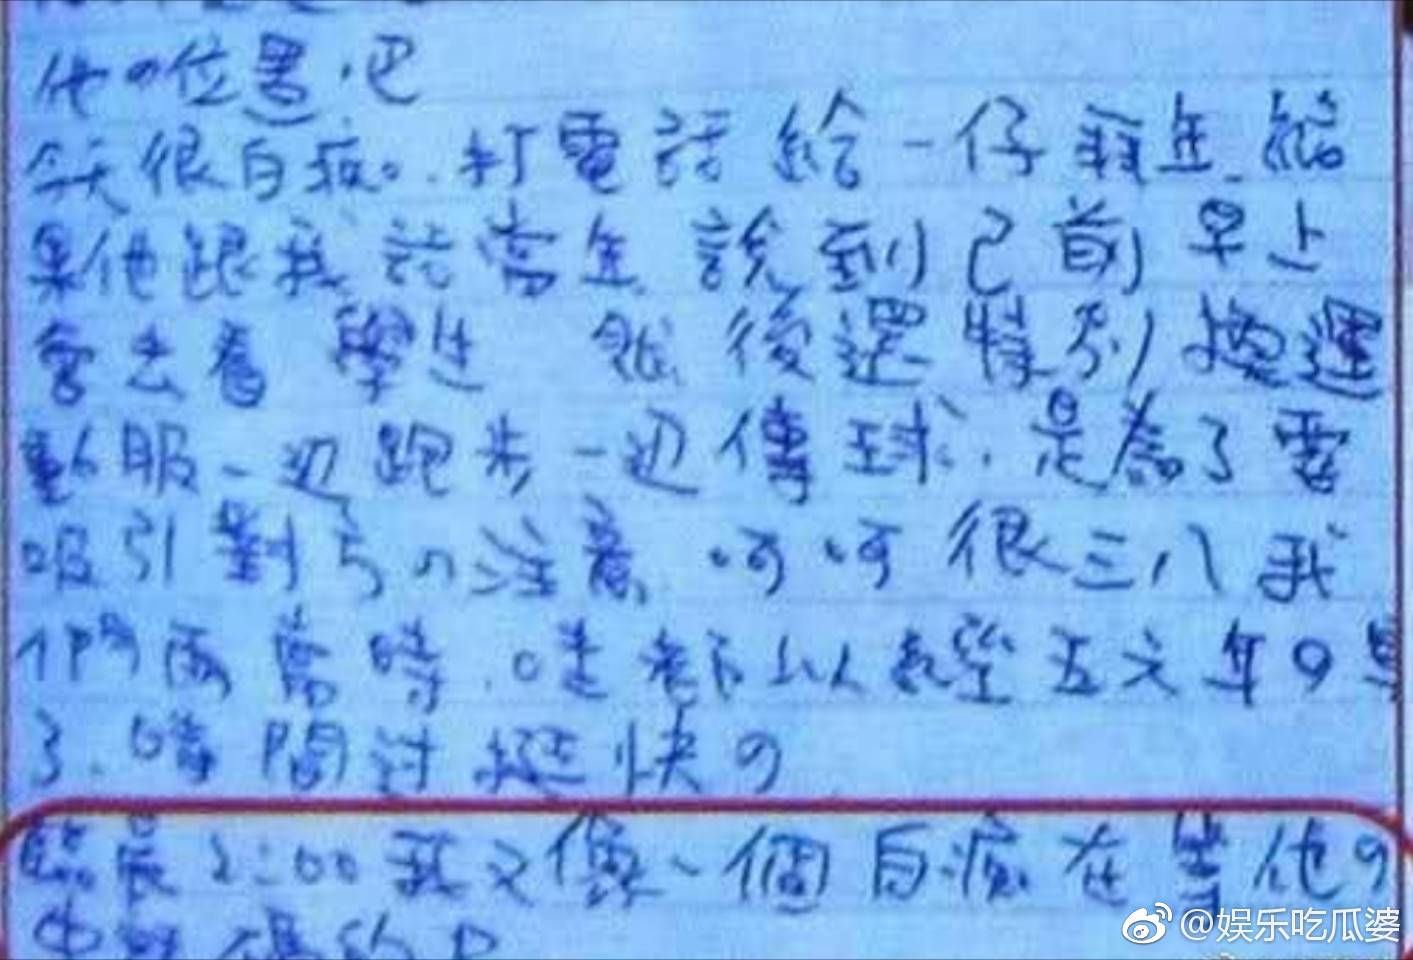 他の位置吧
今天很白痴。打電話給一仔聊年結
果他跟我話當年說到己前早上
會去看學生 然後還特別換運
動服一边跑步一边傳球.是為了要
吸引對方の注意.呵呵很三八我
們兩當時.哇都以經五六年の事
了.時間过挺快の
臨晨2:00我又像一個白痴在等他の
@娱乐吃瓜婆